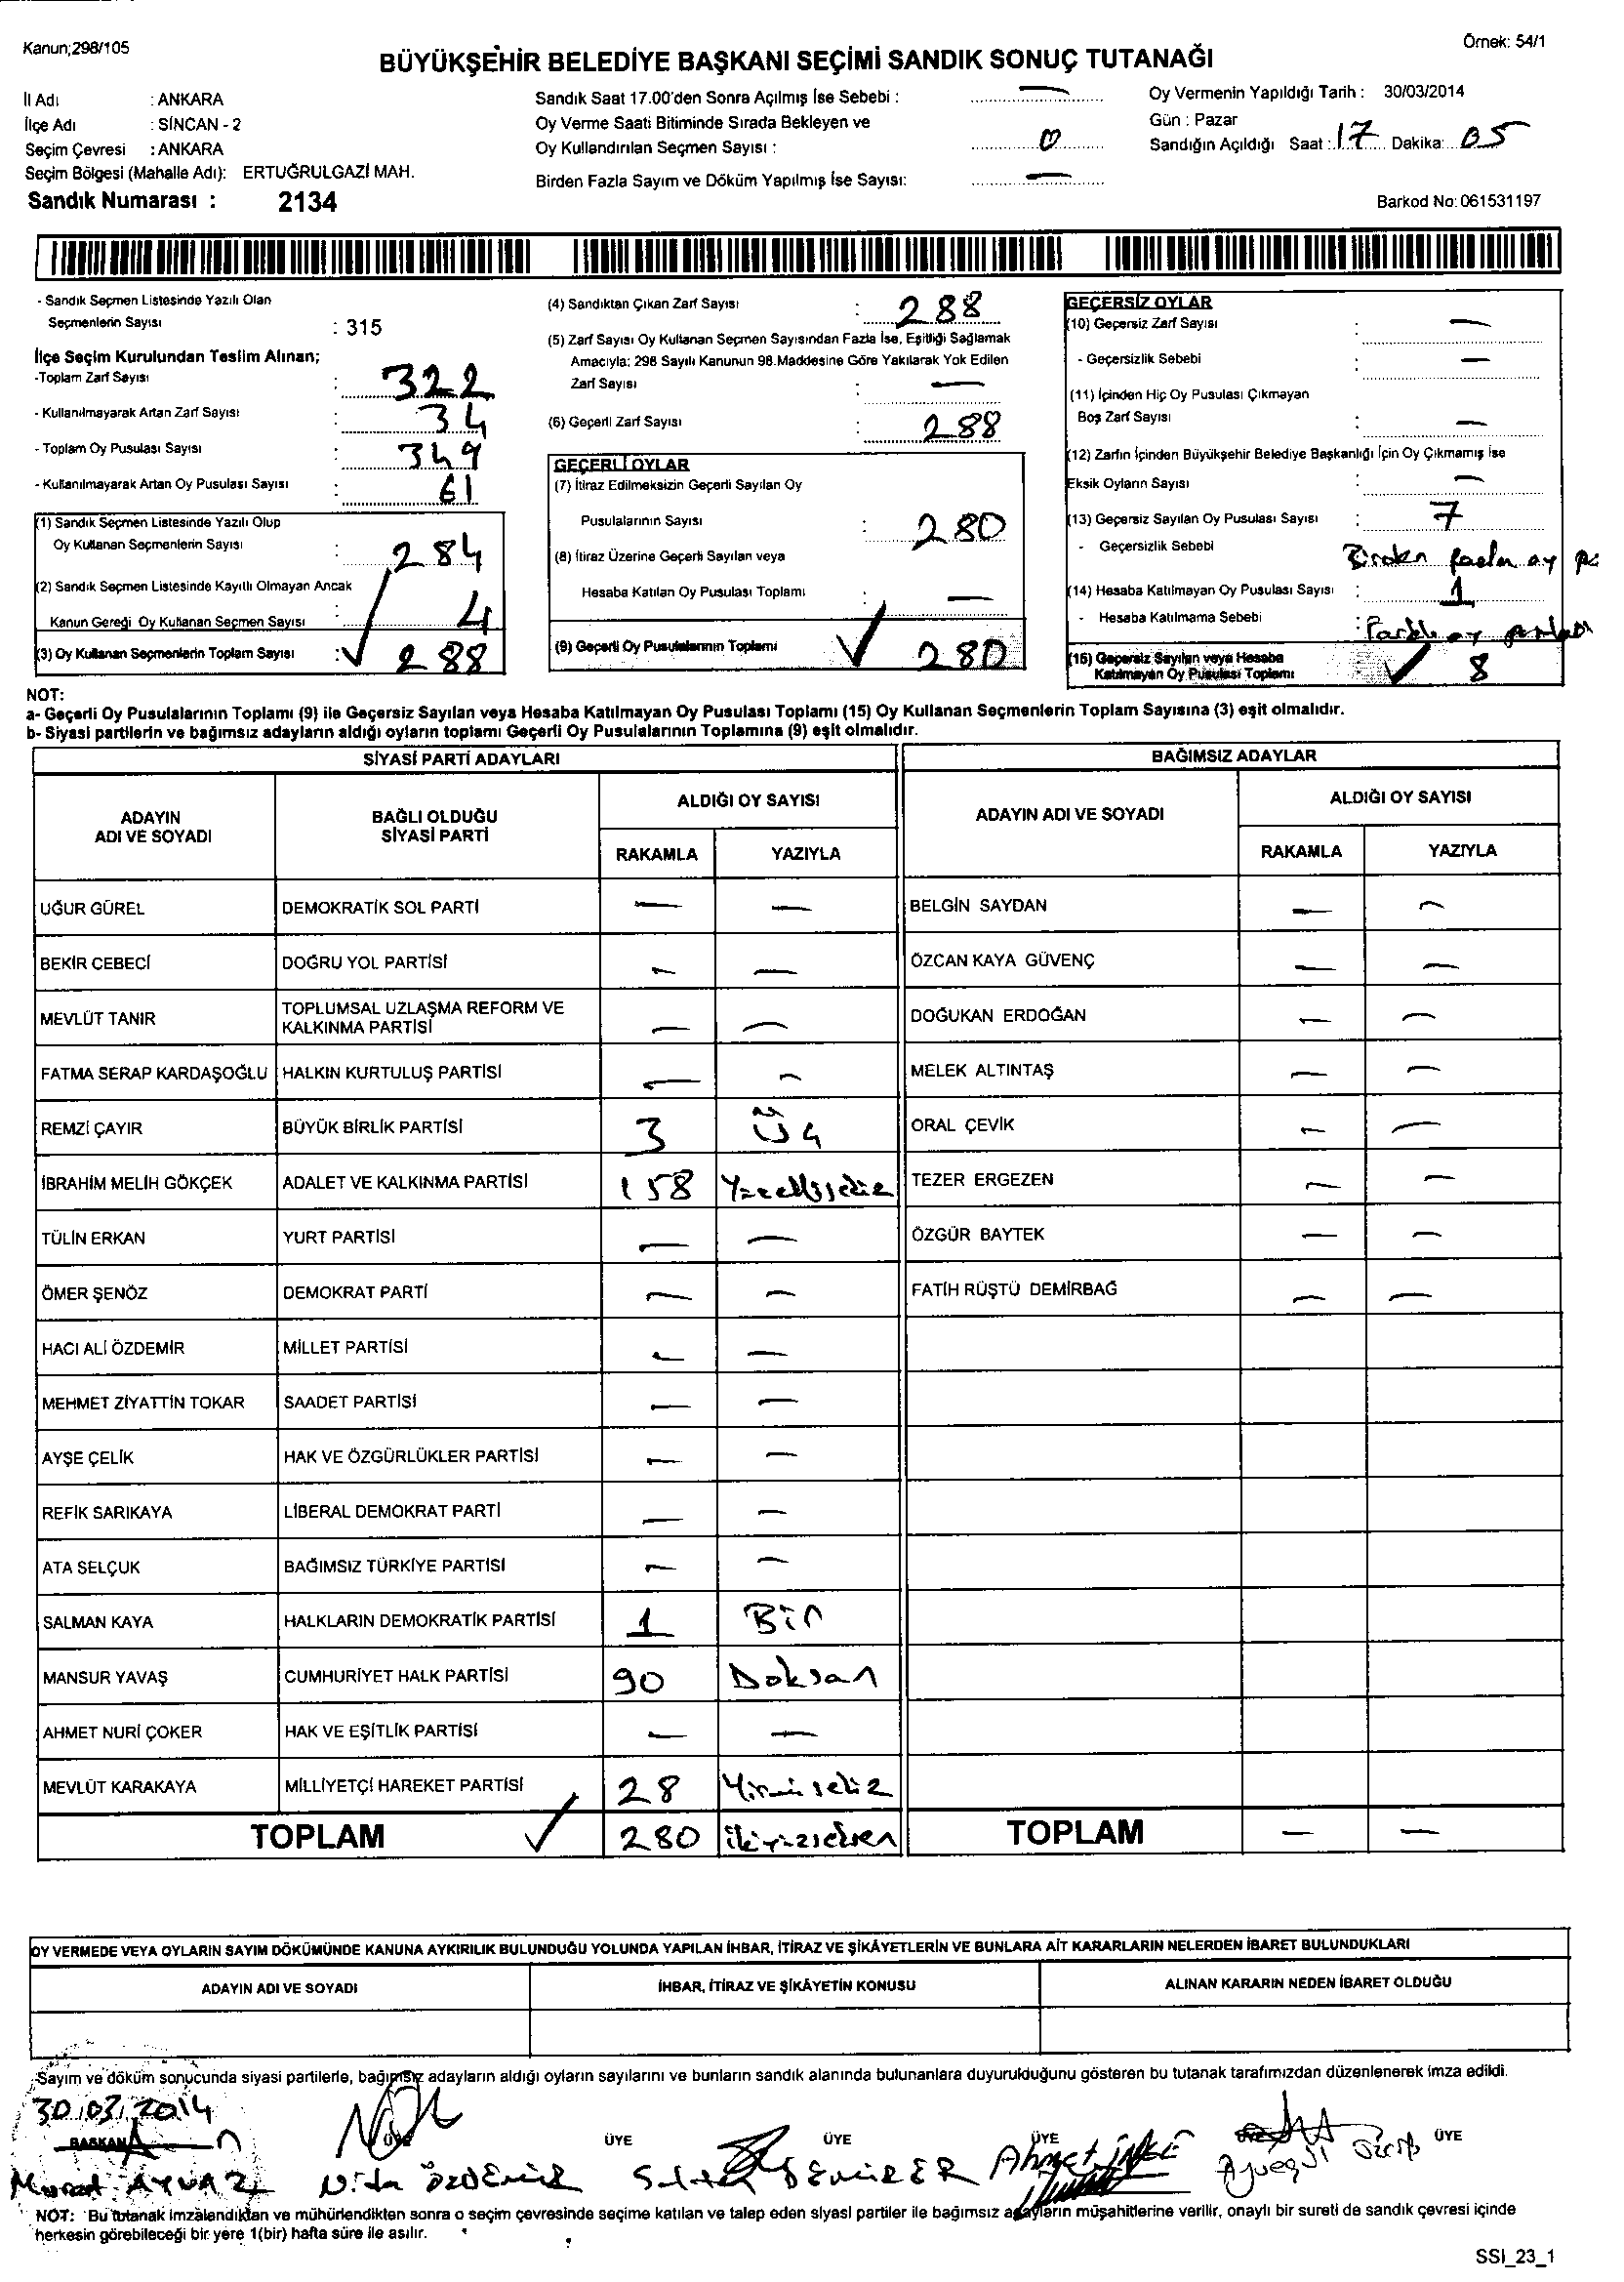 Kanun;298/105
Örnek: 54/1
BÜYÜKŞEHİR BELEDİYE BAŞKANI SEÇİMİ SANDIK SONUÇ TUTANAĞI
İl Adı : ANKARA
İlçe Adı : SİNCAN - 2
Seçim Çevresi : ANKARA
Seçim Bölgesi (Mahalle Adı): ERTUĞRULGAZİ MAH.
Sandık Numarası : 2134
Sandık Saat 17.00'den Sonra Açılmış İse Sebebi : —
Oy Verme Saati Bitiminde Sırada Bekleyen ve
Oy Kullandırılan Seçmen Sayısı : 0
Birden Fazla Sayım ve Döküm Yapılmış İse Sayısı: —
Oy Vermenin Yapıldığı Tarih : 30/03/2014
Gün : Pazar
Sandığın Açıldığı Saat : 17 Dakika: 05
Barkod No: 061531197
- Sandık Seçmen Listesinde Yazılı Olan
Seçmenlerin Sayısı : 315
İlçe Seçim Kurulundan Teslim Alınan;
-Toplam Zarf Sayısı : 322
- Kullanılmayarak Artan Zarf Sayısı : 34
- Toplam Oy Pusulası Sayısı : 349
- Kullanılmayarak Artan Oy Pusulası Sayısı : 61
(1) Sandık Seçmen Listesinde Yazılı Olup
Oy Kullanan Seçmenlerin Sayısı : 284
(2) Sandık Seçmen Listesinde Kayıtlı Olmayan Ancak
Kanun Gereği Oy Kullanan Seçmen Sayısı : 4
(3) Oy Kullanan Seçmenlerin Toplam Sayısı : 288
(4) Sandıktan Çıkan Zarf Sayısı : 288
(5) Zarf Sayısı Oy Kullanan Seçmen Sayısından Fazla İse, Eşitliği Sağlamak
Amacıyla; 298 Sayılı Kanunun 98.Maddesine Göre Yakılarak Yok Edilen
Zarf Sayısı : —
(6) Geçerli Zarf Sayısı : 288
GEÇERLİ OYLAR
(7) İtiraz Edilmeksizin Geçerli Sayılan Oy
Pusulalarının Sayısı : 280
(8) İtiraz Üzerine Geçerli Sayılan veya
Hesaba Katılan Oy Pusulası Toplamı : —
(9) Geçerli Oy Pusulalarının Toplamı 280
GEÇERSİZ OYLAR
(10) Geçersiz Zarf Sayısı : —
- Geçersizlik Sebebi : —
(11) İçinden Hiç Oy Pusulası Çıkmayan
Boş Zarf Sayısı : —
(12) Zarfın İçinden Büyükşehir Belediye Başkanlığı İçin Oy Çıkmamış İse
Eksik Oyların Sayısı : —
(13) Geçersiz Sayılan Oy Pusulası Sayısı : 7
- Geçersizlik Sebebi Birden fazla oy
(14) Hesaba Katılmayan Oy Pusulası Sayısı : 1
- Hesaba Katılmama Sebebi : Farklı oy pusulası
(15) Geçersiz Sayılan veya Hesaba
Katılmayan Oy Pusulası Toplamı : 8
NOT:
a- Geçerli Oy Pusulalarının Toplamı (9) ile Geçersiz Sayılan veya Hesaba Katılmayan Oy Pusulası Toplamı (15) Oy Kullanan Seçmenlerin Toplam Sayısına (3) eşit olmalıdır.
b- Siyasi partilerin ve bağımsız adayların aldığı oyların toplamı Geçerli Oy Pusulalarının Toplamına (9) eşit olmalıdır.
SİYASİ PARTİ ADAYLARI
ADAYIN ADI VE SOYADI
BAĞLI OLDUĞU SİYASİ PARTİ
ALDIĞI OY SAYISI
RAKAMLA YAZIYLA
UĞUR GÜREL DEMOKRATİK SOL PARTİ — —
BEKİR CEBECİ DOĞRU YOL PARTİSİ — —
MEVLÜT TANIR TOPLUMSAL UZLAŞMA REFORM VE KALKINMA PARTİSİ — —
FATMA SERAP KARDAŞOĞLU HALKIN KURTULUŞ PARTİSİ — —
REMZİ ÇAYIR BÜYÜK BİRLİK PARTİSİ 3 Üç
İBRAHİM MELİH GÖKÇEK ADALET VE KALKINMA PARTİSİ 158 Yüzellisekiz
TÜLİN ERKAN YURT PARTİSİ — —
ÖMER ŞENÖZ DEMOKRAT PARTİ — —
HACI ALİ ÖZDEMİR MİLLET PARTİSİ — —
MEHMET ZİYATTİN TOKAR SAADET PARTİSİ — —
AYŞE ÇELİK HAK VE ÖZGÜRLÜKLER PARTİSİ — —
REFİK SARIKAYA LİBERAL DEMOKRAT PARTİ — —
ATA SELÇUK BAĞIMSIZ TÜRKİYE PARTİSİ — —
SALMAN KAYA HALKLARIN DEMOKRATİK PARTİSİ 1 Bir
MANSUR YAVAŞ CUMHURİYET HALK PARTİSİ 90 Doksan
AHMET NURİ ÇOKER HAK VE EŞİTLİK PARTİSİ — —
MEVLÜT KARAKAYA MİLLİYETÇİ HAREKET PARTİSİ 28 Yirmisekiz
TOPLAM 280 ikiyüzseksen
BAĞIMSIZ ADAYLAR
ADAYIN ADI VE SOYADI
ALDIĞI OY SAYISI
RAKAMLA YAZIYLA
BELGİN SAYDAN — —
ÖZCAN KAYA GÜVENÇ — —
DOĞUKAN ERDOĞAN — —
MELEK ALTINTAŞ — —
ORAL ÇEVİK — —
TEZER ERGEZEN — —
ÖZGÜR BAYTEK — —
FATİH RÜŞTÜ DEMİRBAĞ — —
TOPLAM — —
OY VERMEDE VEYA OYLARIN SAYIM DÖKÜMÜNDE KANUNA AYKIRILIK BULUNDUĞU YOLUNDA YAPILAN İHBAR, İTİRAZ VE ŞİKÂYETLERİN VE BUNLARA AİT KARARLARIN NELERDEN İBARET BULUNDUKLARI
ADAYIN ADI VE SOYADI İHBAR, İTİRAZ VE ŞİKÂYETİN KONUSU ALINAN KARARIN NEDEN İBARET OLDUĞU
Sayım ve döküm sonucunda siyasi partilerle, bağımsız adayların aldığı oyların sayılarını ve bunların sandık alanında bulunanlara duyurulduğunu gösteren bu tutanak tarafımızdan düzenlenerek imza edildi.
30.03.2014
BAŞKAN ÜYE ÜYE ÜYE ÜYE ÜYE ÜYE
Murat AYVAZ Nida ÖZDEMİR DEMİRER Ahmet Ayşegül
NOT: Bu tutanak imzalandıktan ve mühürlendikten sonra o seçim çevresinde seçime katılan ve talep eden siyasi partiler ile bağımsız adayların müşahitlerine verilir, onaylı bir sureti de sandık çevresi içinde
herkesin görebileceği bir yere 1(bir) hafta süre ile asılır.
SSI_23_1